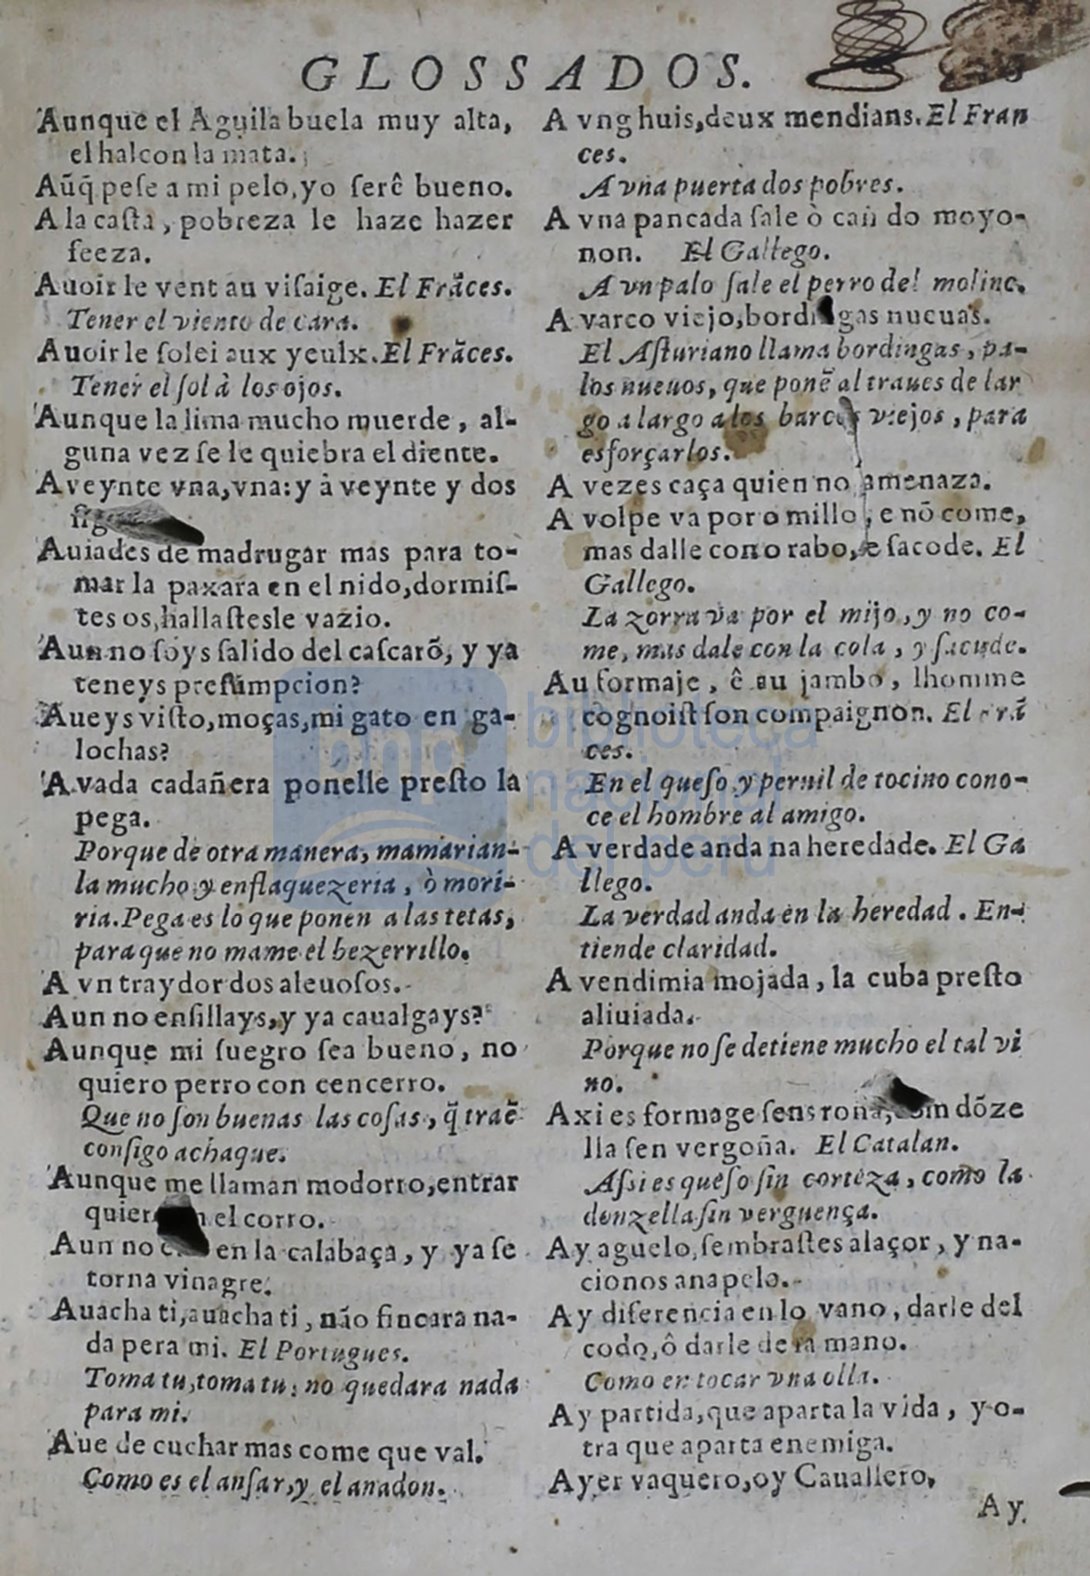 GLOSSADOS.
Aunque el Aguila buela muy alta,
el halcon la mata.
Aũq̃ pese a mi pelo, yo serê bueno.
A la casta, pobreza le haze hazer
feeza.
Auoir le vent au visaige. El Frãces.
Tener el viento de cara.
Auoir le solei aux yeulx. El Frãces.
Tener el sol à los ojos.
Aunque la lima mucho muerde, al-
guna vez se le quiebra el diente.
A veynte vna, vna: y à veynte y dos
Auiades de madrugar mas para to-
mar la paxara en el nido, dormis-
tes os, hallastesle vazio.
Aun no soys salido del cascarõ, y ya
teneys presumpcion?
Aueys visto, moças, mi gato en ga-
lochas?
A vada cadañera ponelle presto la
pega.
Porque de otra manera, mamarian-
la mucho y enflaquezeria, ò mori-
ria. Pega es lo que ponen a las tetas,
para que no mame el bezerrillo.
A vn traydor dos aleuosos.
Aun no ensillays, y ya caualgays?
Aunque mi suegro sea bueno, no
quiero perro con cencerro.
Que no son buenas las cosas, q̃ traẽ
consigo achaque.
Aunque me llaman modorro, entrar
el corro.
Aun no en la calabaça, y ya se
torna vinagre.
Auacha ti, auacha ti, não fincara na-
da pera mi. El Portugues.
Toma tu, toma tu: no quedara nada
para mi.
Aue de cuchar mas come que val.
Como es el ansar, y el anadon.
A vng huis, deux mendians. El Fran
ces.
A vna puerta dos pobres.
A vna pancada sale ò can do moyo-
non. El Gallego.
A vn palo sale el perro del molino.
A varco viejo, bordingas nueuas.
El Asturiano llama bordingas, pa-
los nueuos, que ponẽ al traues de lar
go a largo a los barcos viejos, para
esforçarlos.
A vezes caça quien no amenaza.
A volpe va por o millo, e nõ come,
mas dalle con o rabo, e sacode. El
Gallego.
La zorra va por el mijo, y no co-
me, mas dale con la cola, y sacude.
Au formaje, ê au jambo, lhomme
cògnoist son compaignon. El Frã
ces.
En el queso y pernil de tocino cono-
ce el hombre al amigo.
A verdade anda na heredade. El Ga
llego.
La verdad anda en la heredad. En-
tiende claridad.
A vendimia mojada, la cuba presto
aliuiada.
Porque no se detiene mucho el tal vi
no.
Axi es formage sens rona, com dõze
lla sen vergoña. El Catalan.
Assi es queso sin corteza, como la
donzella sin verguença.
Ay aguelo, sembrastes alaçor, y na-
cionos anapelo.
Ay diferencia en lo vano, darle del
codo, ô darle de la mano.
Como en tocar vna olla.
Ay partida, que aparta la vida, y o-
tra que aparta enemiga.
Ayer vaquero, oy Cauallero,
Ay
biblioteca
nacional
del perú